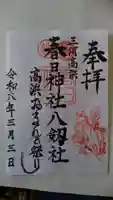 奉拝
三河高浜
春日神社八剱社
高浜おまんと祭り
令和八年三月三日